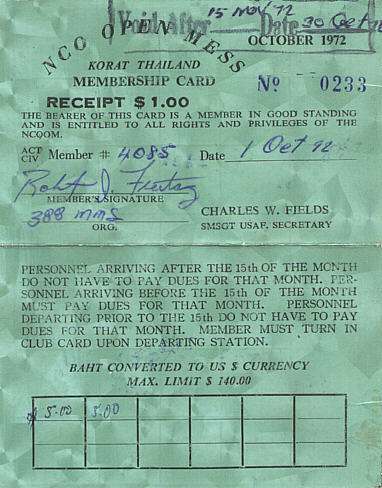 15 NOV 72
Void After Date 30 Oct 72
NCO OPEN MESS
OCTOBER 1972
KORAT THAILAND
MEMBERSHIP CARD
No 0233
RECEIPT $1.00
THE BEARER OF THIS CARD IS A MEMBER IN GOOD STANDING
AND IS ENTITLED TO ALL RIGHTS AND PRIVILEGES OF THE
NCOOM.
ACT
CIV Member # 4085 Date 1 Oct 72
Robert J.
MEMBER'S SIGNATURE
388 MMS
ORG.
CHARLES W. FIELDS
SMSGT USAF. SECRETARY
PERSONNEL ARRIVING AFTER THE 15th OF THE MONTH
DO NOT HAVE TO PAY DUES FOR THAT MONTH. PER-
SONNEL ARRIVING BEFORE THE 15th OF THE MONTH
MUST PAY DUES FOR THAT MONTH. PERSONNEL
DEPARTING PRIOR TO THE 15th DO NOT HAVE TO PAY
DUES FOR THAT MONTH. MEMBER MUST TURN IN
CLUB CARD UPON DEPARTING STATION.
BAHT CONVERTED TO US $ CURRENCY
MAX. LIMIT $ 140.00
$ 5.00 5.00